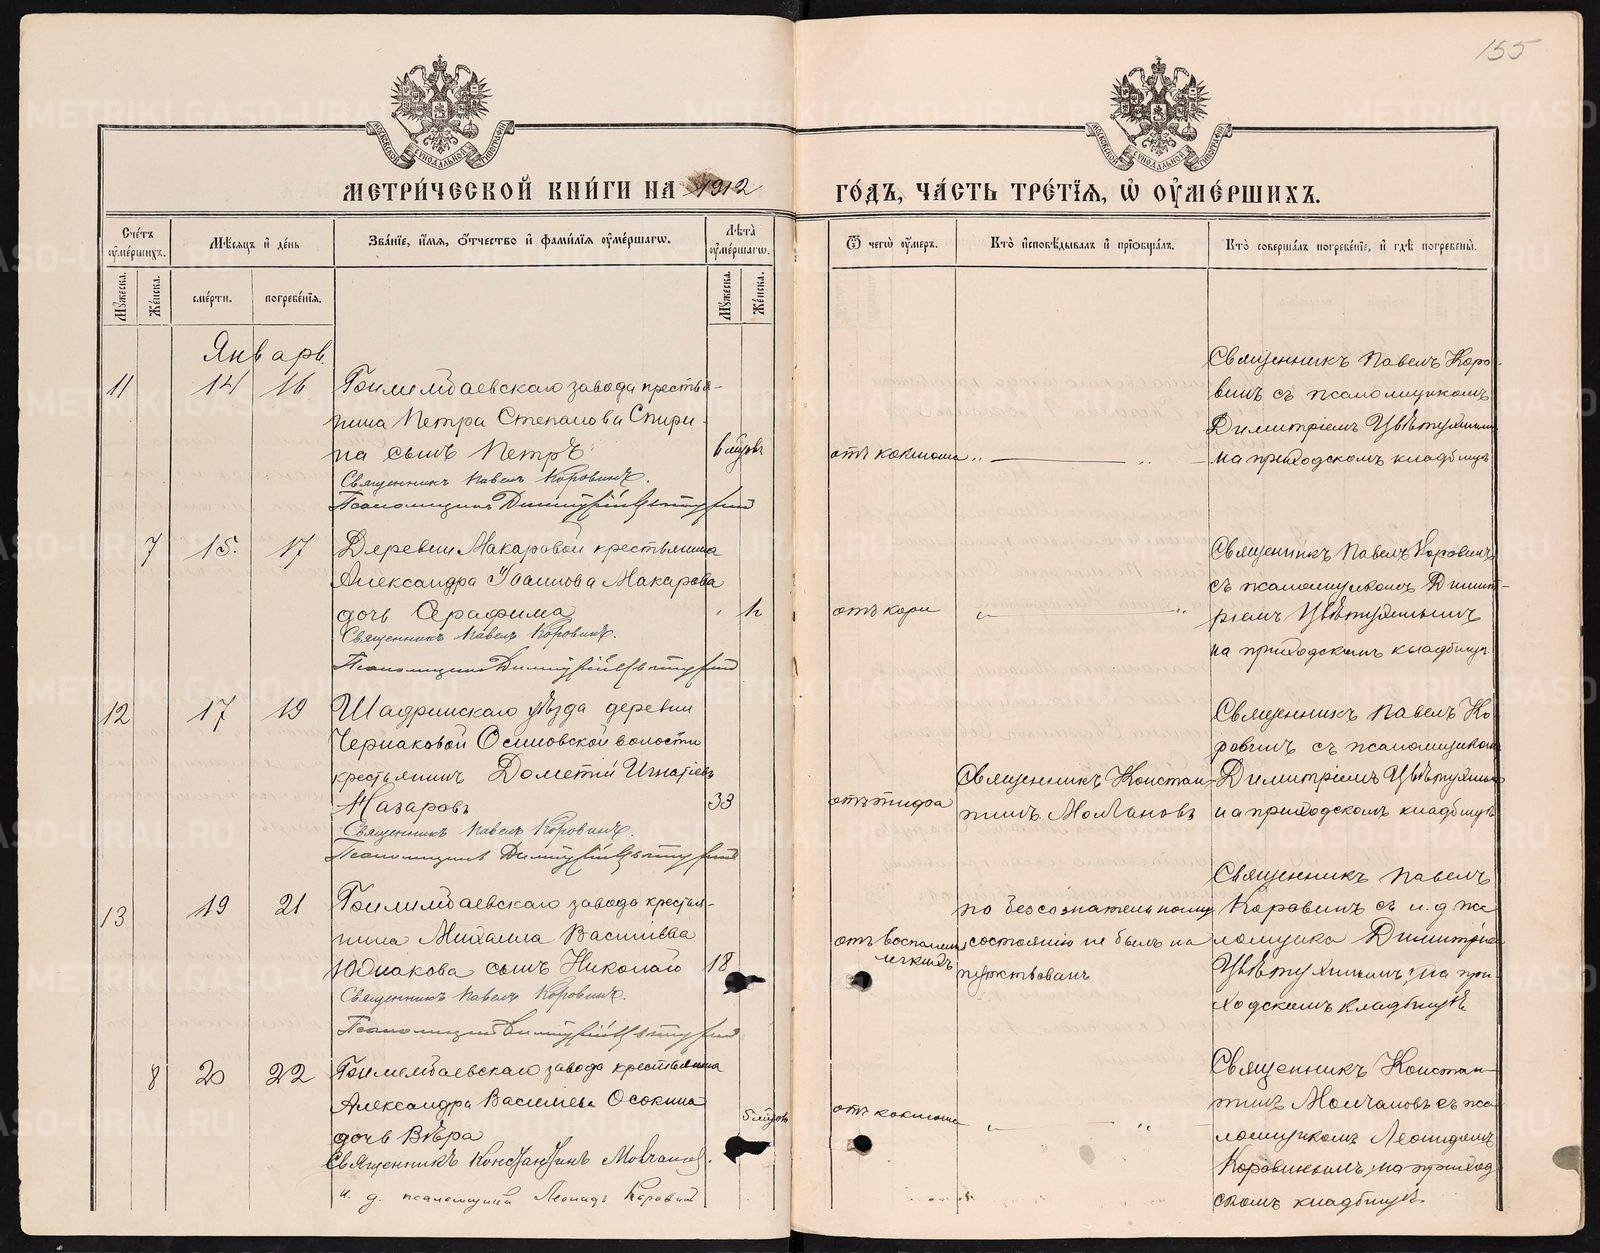 155
МЕТРИ́ЧЕСКОЙ КНИ́ГИ НА 1912 ГО́ДЪ, ЧА́СТЬ ТРЕ́ТЇѦ, Ѿ ОУ҆МЕ́РШИХЪ.
Сче́тъ оу҆ме́ршихъ.
Мѣ́сяцъ и҆ де́нь
Зва́нїе, и҆́мя, ѻ҆́тчество и҆ фами́лїя оу҆ме́ршагѡ.
Лѣ́та оу҆ме́ршагѡ.
Ѿ чегѡ̀ оу҆́меръ.
Кто̀ и҆сповѣ́дывалъ и҆ прїѡбща́лъ.
Кто̀ соверша́лъ погребе́нїе, и҆ гдѣ̀ погребены̀.
Мꙋ́жеска. Же́нска.
сме́рти. погребе́нїя.
Мꙋ́жеска. Же́нска.
Январь.
11 14 16
Билимбаевскаго завода крестья-
нина Петра Степанова Спири-
на сынъ Петръ
Священникъ Павелъ Коровинъ.
Псаломщикъ Димитрій Цвѣтухинъ
отъ коклюша
Священникъ Павелъ Коро-
винъ съ псаломщикомъ
Димитріемъ Цвѣтухинымъ
на приходскомъ кладбищѣ
7 15. 17
Деревни Макаровой крестьянина
Александра Іоаннова Макарова
дочь Серафима
Священникъ Павелъ Коровинъ.
Псаломщикъ Димитрій Цвѣтухинъ
отъ кори
Священникъ Павелъ Коровинъ,
съ псаломщикомъ Димит-
ріемъ Цвѣтухинымъ
на приходскомъ кладбищѣ
12 17 19
Шадринскаго уѣзда деревни
Черпаковой Осиновской волости
крестьянинъ Дометій Игнатіевъ
Назаровъ
33
Священникъ Павелъ Коровинъ.
Псаломщикъ Димитрій Цвѣтухинъ
отъ тифа
Священникъ Констан-
тинъ Молчановъ
Священникъ Павелъ Ко-
ровинъ съ псаломщикомъ
Димитріемъ Цвѣтухинымъ
на приходскомъ кладбищѣ
13 19 21
Билимбаевскаго завода крестья-
нина Михаила Васильева
Юдиакова сынъ Николай
18
Священникъ Павелъ Коровинъ.
Псаломщикъ Димитрій Цвѣтухинъ
отъ воспаленія
легкихъ
по безсознательному
состоянію не былъ на
путствованъ
Священникъ Павелъ
Коровинъ съ и. д. пса
ломщика Димитріемъ
Цвѣтухинымъ, на при-
ходскомъ кладбищѣ
8 20 22
Билимбаевскаго завода крестьянина
Александра Васильева Осокина
дочь Вѣра
Священникъ Константинъ Молчановъ.
и. д. псаломщика Леонидъ Коровинъ
отъ коклюша
Священникъ Констан-
тинъ Молчановъ съ пса
ломщикомъ Леонидомъ
Коровинымъ, на приход
скомъ кладбищѣ
METRIKI.GASO-URAL.RU